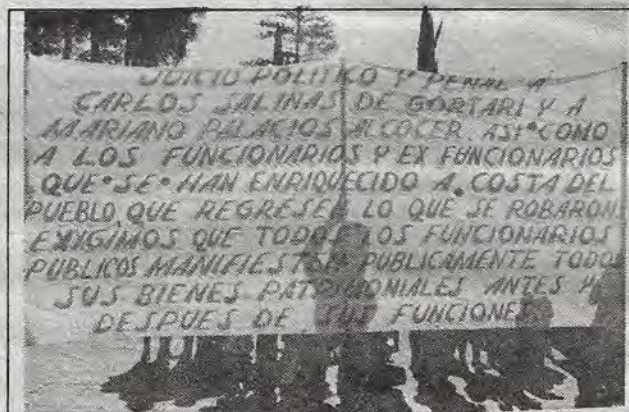 JUICIO POLITICO Y PENAL A
CARLOS SALINAS DE GORTARI Y A
MARIANO PALACIOS ALCOCER. ASI COMO
A LOS FUNCIONARIOS Y EX FUNCIONARIOS
QUE SE HAN ENRIQUECIDO A COSTA DEL
PUEBLO, QUE REGRESEN LO QUE SE ROBARON.
EXIGIMOS QUE TODOS LOS FUNCIONARIOS
PUBLICOS MANIFIESTEN PUBLICAMENTE TODOS
SUS BIENES PATRIMONIALES ANTES Y
DESPUES DE SUS FUNCIONES